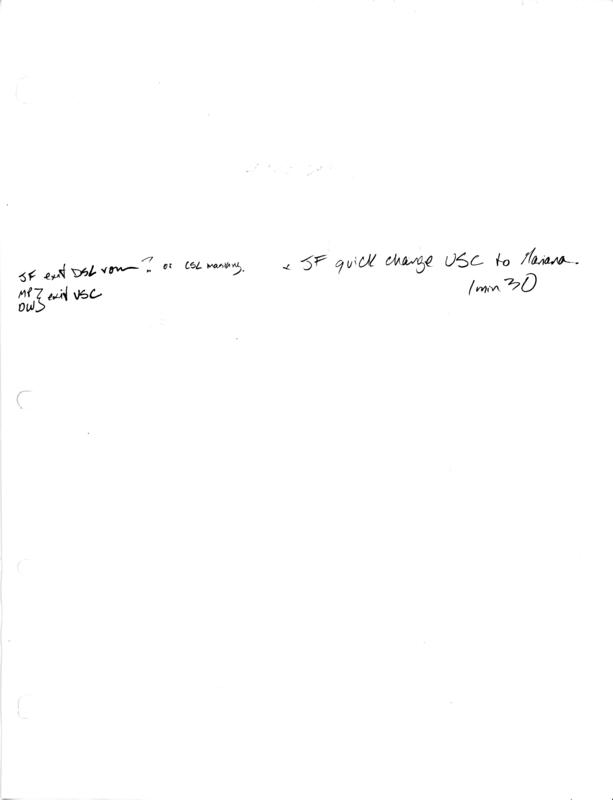 JF exit DSL vom ? or CSL masking.
MP } exit USC
DW
* JF quick change USC to Mariana.
1 min 30